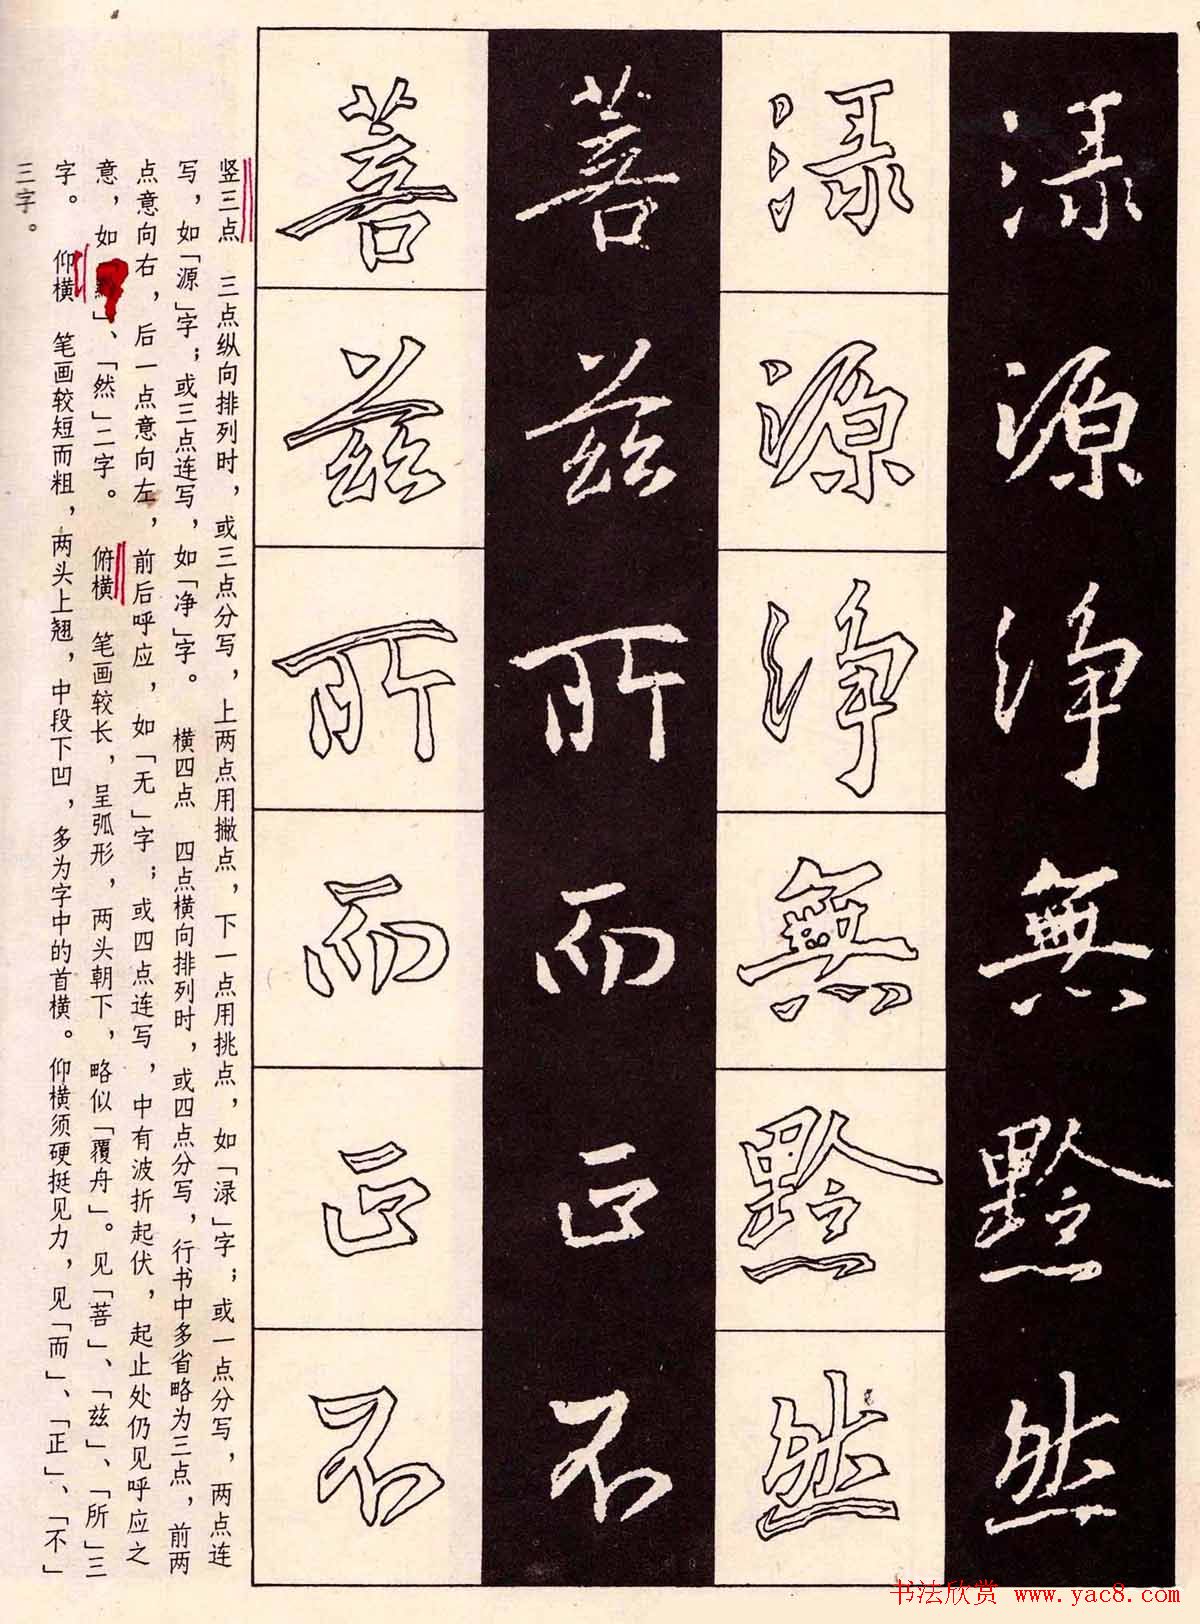 渌
源
浄
無
黔
然
渌
源
浄
無
黔
然
菩
兹
所
而
正
不
菩
兹
所
而
正
不
竖三点　三点纵向排列时，或三点分写，上两点用撇点，下一点用挑点，如「渌」字；或一点分写，两点连
写，如「源」字；或三点连写，如「净」字。　横四点　四点横向排列时，或四点分写，行书中多省略为三点，前两
点意向右，后一点意向左，前后呼应，如「无」字；或四点连写，中有波折起伏，起止处仍见呼应之
意，如」、「然」二字。　俯横　笔画较长，呈弧形，两头朝下，略似「覆舟」。见「菩」、「兹」、「所」三
字。　仰横　笔画较短而粗，两头上翘，中段下凹，多为字中的首横。仰横须硬挺见力，见「而」、「正」、「不」
三字。
书法欣赏 www.yac8.com